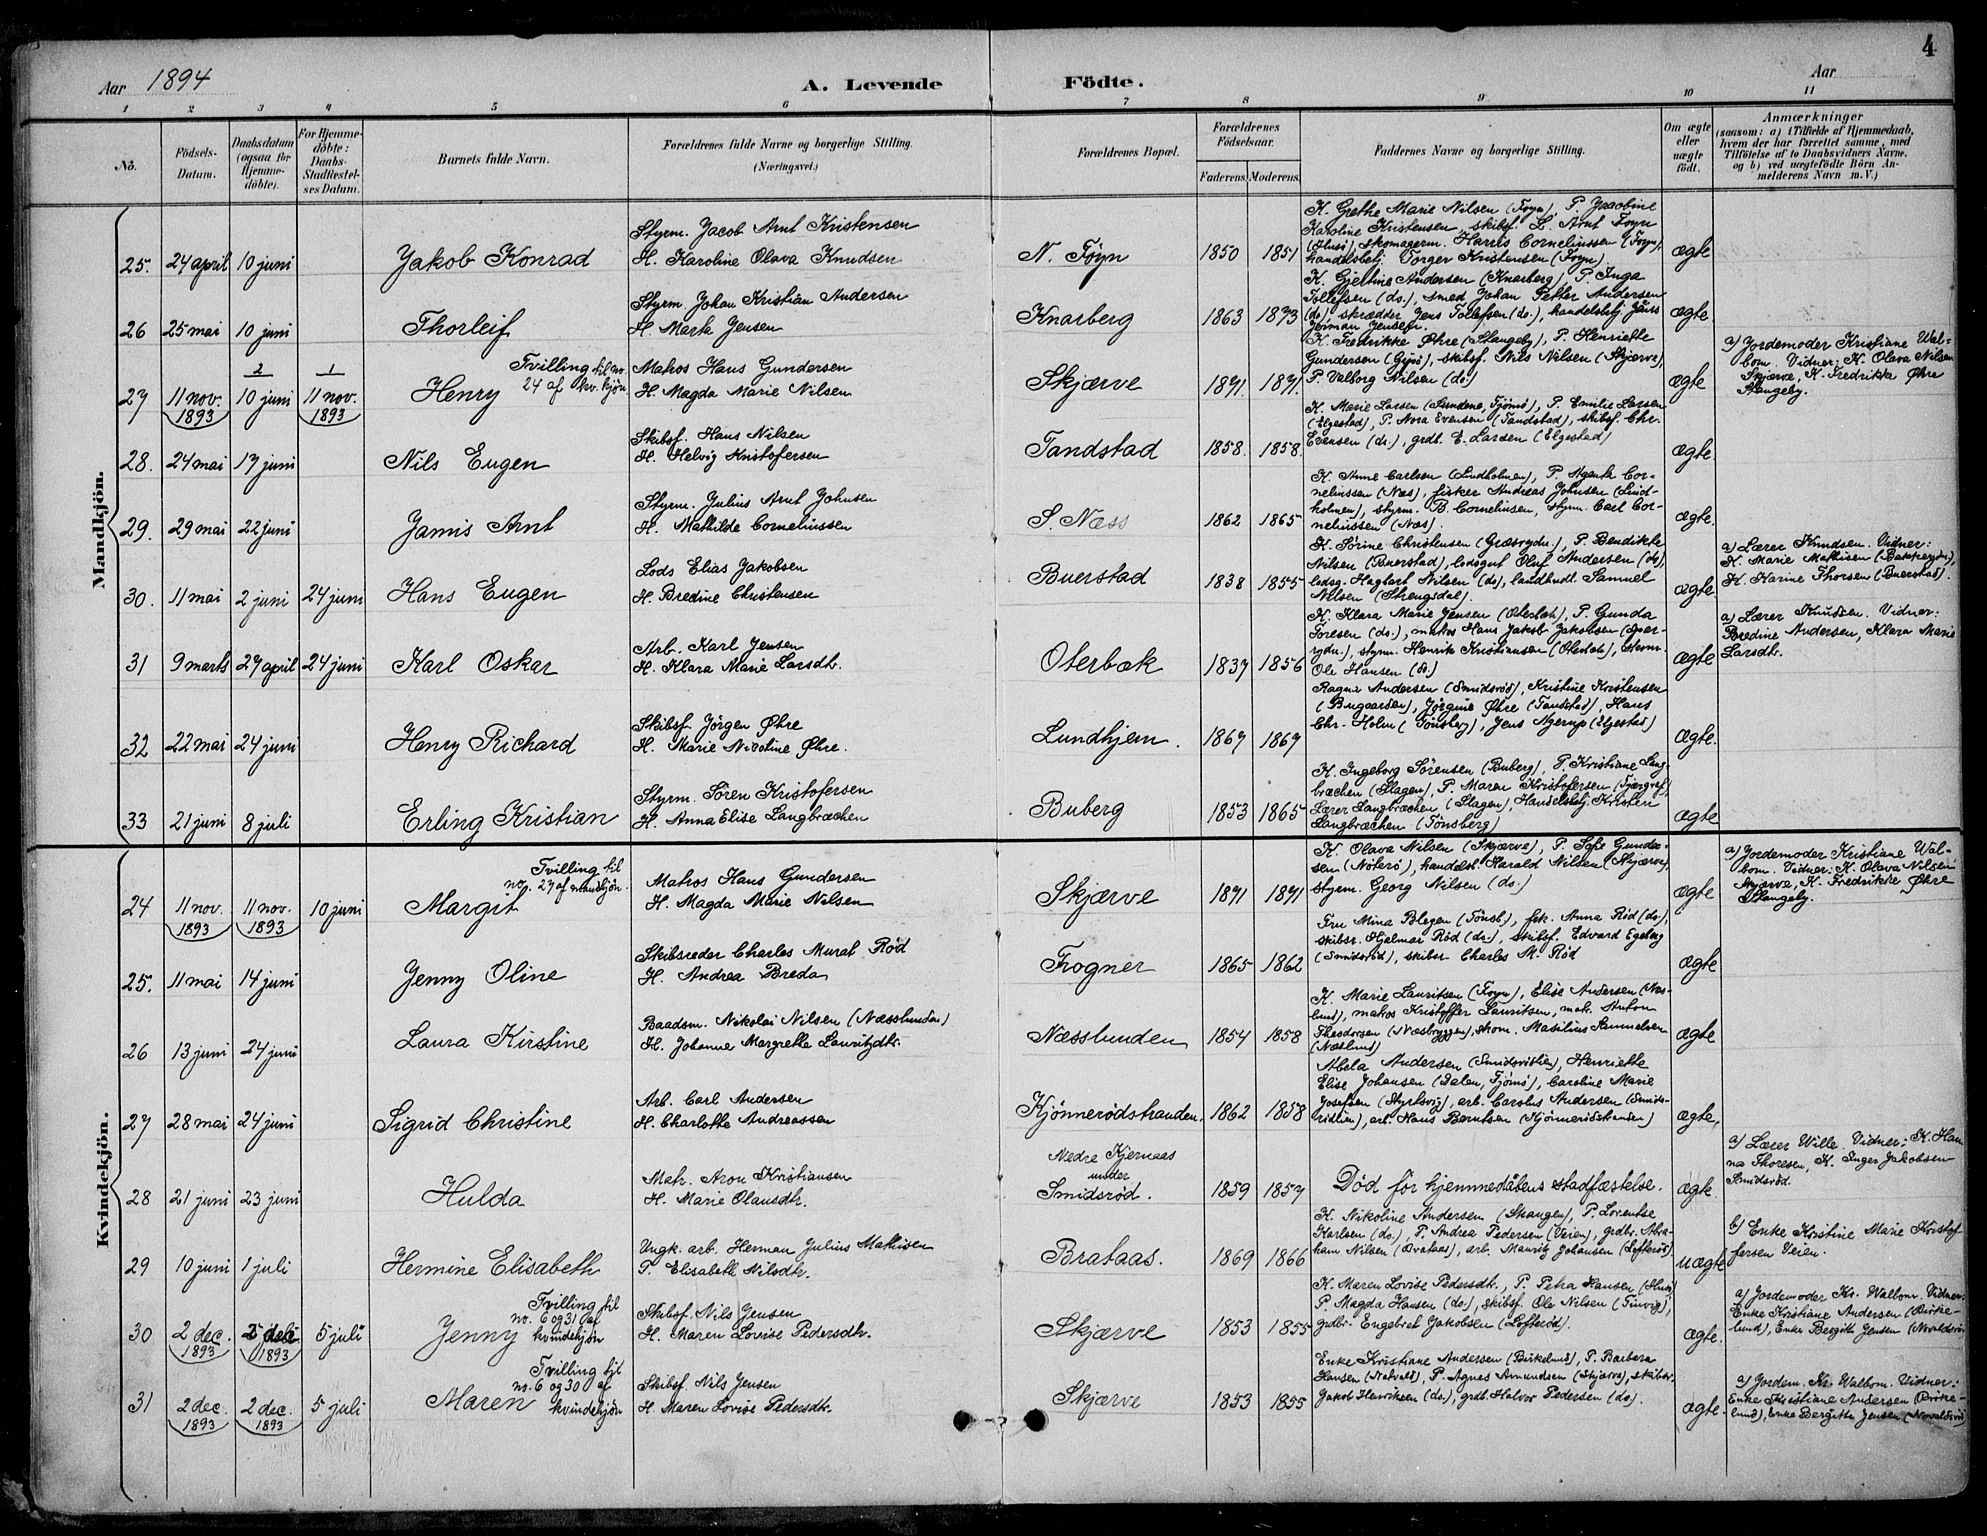 4
Aar 1894
A. Levende Födte.
Aar
1 2 3 4 5 6 7 8 9 10 11
Nö.
Födsels-Datum.
Daabsdatum (ogsaa for Hjemme-döbte).
For Hjemme-döbte: Daabs-Stadfæstelses Datum.
Barnets fulde Navn.
Forældrenes fulde Navne og borgerlige Stilling.
(Næringsvei.)
Forældrenes Bopæl.
Forældrenes Födselsaar.
Faderens. Moderens.
Faddernes Navne og borgerlige Stilling.
Om ægte eller uægte födt.
Anmærkninger
(saasom: a) i Tilfælde af Hjemmedaab,
hvem der har forrettet samme, med
Tilföielse af to Daabsvidners Navne,
og b) ved uægtefödte Börn An-
melderens Navn m.V.)
Mandkjön.
25. 24 april 10 juni Jakob Konrad
Styrm. Jacob Arnt Kristensen
H. Karoline Olava Knudsen
N. Föyn 1850 1851
K. Grethe Marie Nilsen (Foyn), P. Jacobine
Karoline Kristensen, skibsf. L. Arnt Foyn
(Husö), skomagerm. Harris Corneliussen (Foyn),
handelsbetj. Torger Kristensen (Foyn)
ægte
26 25 mai 10 juni Thorleif
Styrm Johan Kristian Andersen
H. Marta Jensen
Knarberg 1863 1873
K. Gjeltine Andersen (Knarberg), P. Inga
Tollefsen (do.), smed Johan Petter Andersen
(do), skrædder Jens Tollefsen (do.), handelsbetj. Jens
Herman Jensen
ægte
27 11 nov. 1893 2 10 juni 1 11 nov. 1893 Henry
Tvilling til no.
24 af kv. kjön
Matros Hans Gundersen
H. Magda Marie Nilsen
Skjærve 1871. 1871.
K. Fredrikke Øhre (Stangeby), P. Henriette
Gundersen (Gipö), skibsf. Nils Nilsen (Skjærve),
P. Valborg Nilsen (do.)
ægte
a) Jordemoder Kristiane Wal-
bom. Vidner: K. Olava Nilsen
Skjærve, K. Fredrikke Øhre
Stangeby.
28. 24 mai 17 juni Nils Eugen
Skibsf. Hans Nilsen
H. Helvig Kristofersen
Tandstad 1858. 1858.
K. Marie Larsen (Sundene, Tjömö), P. Emilie Larsen
(Elgestad), P. Nora Evensen (Tandstad), skibsf. Chr.
Evensen (do.), grdb. E. Larsen (Elgestad)
ægte.
29. 29 mai 22 juni Jamis Arnt
Styrm. Julius Arnt Johnsen
H. Mathilde Corneliussen
S. Næss 1862 1865
K. Anne Carlsen (Lindholmen), P. Agenta Cor-
neliussen (Næs), fisker Andreas Johnsen (Lind-
holmen), styrm. B. Corneliusen, styrm. Carl Cor-
neliussen (Næs).
ægte.
30. 11 mai 2 juni 24 juni Hans Eugen
Lods Elias Jakobsen
H. Bredine Christensen
Buerstad 1838 1855
K. Sörine Christensen (Græsrydn.), P. Bendikte
Nilsen (Buerstad), lodsgut Oluf Andersen (do),
lodsg. Hagbart Nilsen (do), landhndl. Samuel
Nilsen (Strengsdal).
ægte
a) Lærer Knudsen. Vidner:
K. Marie Mathisen (Bakkerydn),
K. Karine Thorsen (Buerstad).
31 9 marts 27 april 24 juni Karl Oskar
Arb. Karl Jensen
H. Klara Marie Larsdtr.
Oterbæk 1837 1856
K. Klara Marie Jensen (Oterbæk), P. Gunda
Toresen (do.), matros Hans Jakob Jakobsen (Oter-
rydn.), styrm. Henrik Kristiansen (Oterbæk), styrm.
Ole Hansen (do)
ægte
a) Lærer Knudsen. Vidner:
Bredine Andersen, Klara Marie
Larsdtr.
32 22 mai 24 juni Henry Richard
Skibsf. Jörgen Øhre
H. Marie Nicoline Øhre.
Lundhjem. 1867 1867
Ragna Andersen (Smidsröd), Kristine Kristensen
(Bugaarden), Jörgine Øhre (Tandstad), Hans
Chr. Holm (Tönsberg), Jens Agerup (Elgestad)
ægte.
33 21 juni 8 juli Erling Kristian
Styrm. Sören Kristofersen
H. Anna Elise Langbræchen
Buberg 1853 1865
K. Ingeborg Sörensen (Buberg), P. Kristiane Lang-
bræchen (Slagen), P. Maren Kristofersen (Tjærgraf),
Lærer Langbræchen (Slagen), Handelsbetj. Kristen
Langbræchen (Tönsberg)
ægte
Kvindekjön.
24 11 nov. 1893 11 nov. 1893 10 juni Margit
Tvilling til
no. 27 af mandkjön.
Matros Hans Gundersen
H. Magda Marie Nilsen
Skjærve 1871 1871
K. Olava Nilsen (Skjærve), P. Sofie Gunder-
sen (Nöterö), handelsb. Harald Nilsen (Skjærve),
styrm. Georg Nilsen (do.)
ægte
a) Jordemoder Kristiane Wal-
bom. Vidner: K. Olava Nilsen
Skjærve, K. Fredrikke Øhre
Stangeby.
25. 11 mai 14 juni Jenny Oline
Skibsreder Charles Murat Röd
H. Andrea Breda
Frogner 1865 1862
Fru Mina Blegen (Tönsb.), frk. Anna Röd (do),
skibsr. Hjalmar Röd (do.), skibsf. Edvard Egeberg
(Smidsröd), skibsr Charles M. Röd
ægte
26 13 juni 24 juni Laura Kirstine
Baadsm. Nikolai Nilsen (Næsslunden)
H. Johanne Margrethe Lauritzdtr.
Næsslunden 1854 1858
K. Marie Lauritsen (Foyn), Elise Andersen (Næs-
lund), matros Kristoffer Lauritsen, mat. Anton
Theodorsen (Næsbryggen), skom. Masilius Samuelsen
(Næslund)
ægte
27 28 mai 24 juni Sigrid Christine
Arb. Carl Andersen
H. Charlotte Andreassen
Kjönnerödstranden. 1862 1858
Abela Andersen (Smidsrödlien), Henriette
Elise Johansen (Dalen, Tjömö), Caroline Marie
Josefsen (Styrksvig), arb. Carolus Andersen (Smids-
rödlien), arb. Hans Berntsen (Kjönnerödstranden)
ægte,
28 21 juni 23 juni Hulda
Matr. Aron Kristiansen
H. Marie Olausdtr.
Nedre Kjernaas
under
Smidsröd. 1859 1857
Död för hjemmedåbens stadfæstelse.
ægte
a) Lærer Wille. Vidner: K. Han-
na Thoresen, K. Inger Jakobsen
Smidsröd.
29 10 juni 1 juli Hermine Elisabeth
Ungk. arb. Herman Julius Mathisen
P. Elisabeth Nilsdtr.
Brataas. 1869 1866
K. Nikoline Andersen (Skangen), P. Lorentse
Karlsen (do.), P. Andrea Pedersen (Veien), grdbr. Abra-
ham Nilsen (Brataas), arb. Mauritz Johansen (Lofteröd).
uægte
b) Enke Kristine Marie Kristof-
fersen Veien.
30 2 dec. 1893 5 dec 1893 5 juli Jenny
Tvilling til
no. 6 og 31 af
kvindekjön
Skibsf. Nils Jensen
H. Maren Lovise Pedersdtr.
Skjærve 1853 1855
K. Maren Lovise Pedersdtr., P. Petra Hansen (Husö),
P. Magda Hansen (do), skibsf. Ole Nilsen (Tinvig),
grdbr. Engebret Jakobsen (Lofteröd).
ægte.
a) Jordemoder Kr. Walbom. Vidner:
Enke Kristiane Andersen (Birke-
lund), Enke Bergitte Jensen (Novaldsröd)
31 2 dec. 1893 2 dec. 1893 5 juli Maren
Tvilling til
no. 6 og 30 af
kvindekjön
Skibsf. Nils Jensen
H. Maren Lovise Pedersdtr.
Skjærve 1853 1855
Enke Kristiane Andersen (Birkelund), P. Barbara
Hansen (Netvald), P. Agnes Amundsen (Skjærve), skibsr.
Jakob Henriksen (do), grdb. Halvor Pedersen (do).
ægte.
a) Jordem. Kr. Walbom. Vidner:
Enke Kristiane Andersen (Birke-
lund), Enke Bergitte Jensen (Novaldsröd)